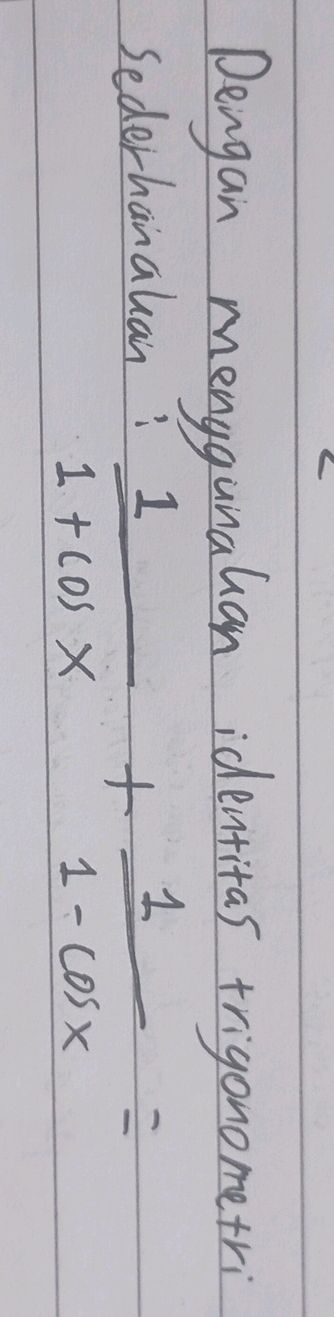 Dengan menggunakan identitas trigonometri
sederhanakan : 1/(1 + cos x) + 1/(1 - cos x) =